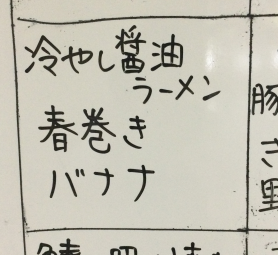 冷やし醤油
ラーメン
春巻き
バナナ
豚
さ
野